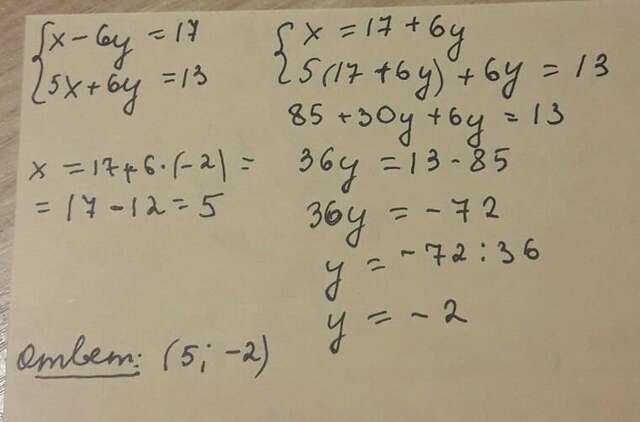 {x - 6y = 17
{5x + 6y = 13
{x = 17 + 6y
{5(17 + 6y) + 6y = 13
85 + 30y + 6y = 13
36y = 13 - 85
36y = - 72
y = -72 : 36
y = - 2
x = 17 + 6 · (-2) =
= 17 - 12 = 5
Ответ: (5; -2)